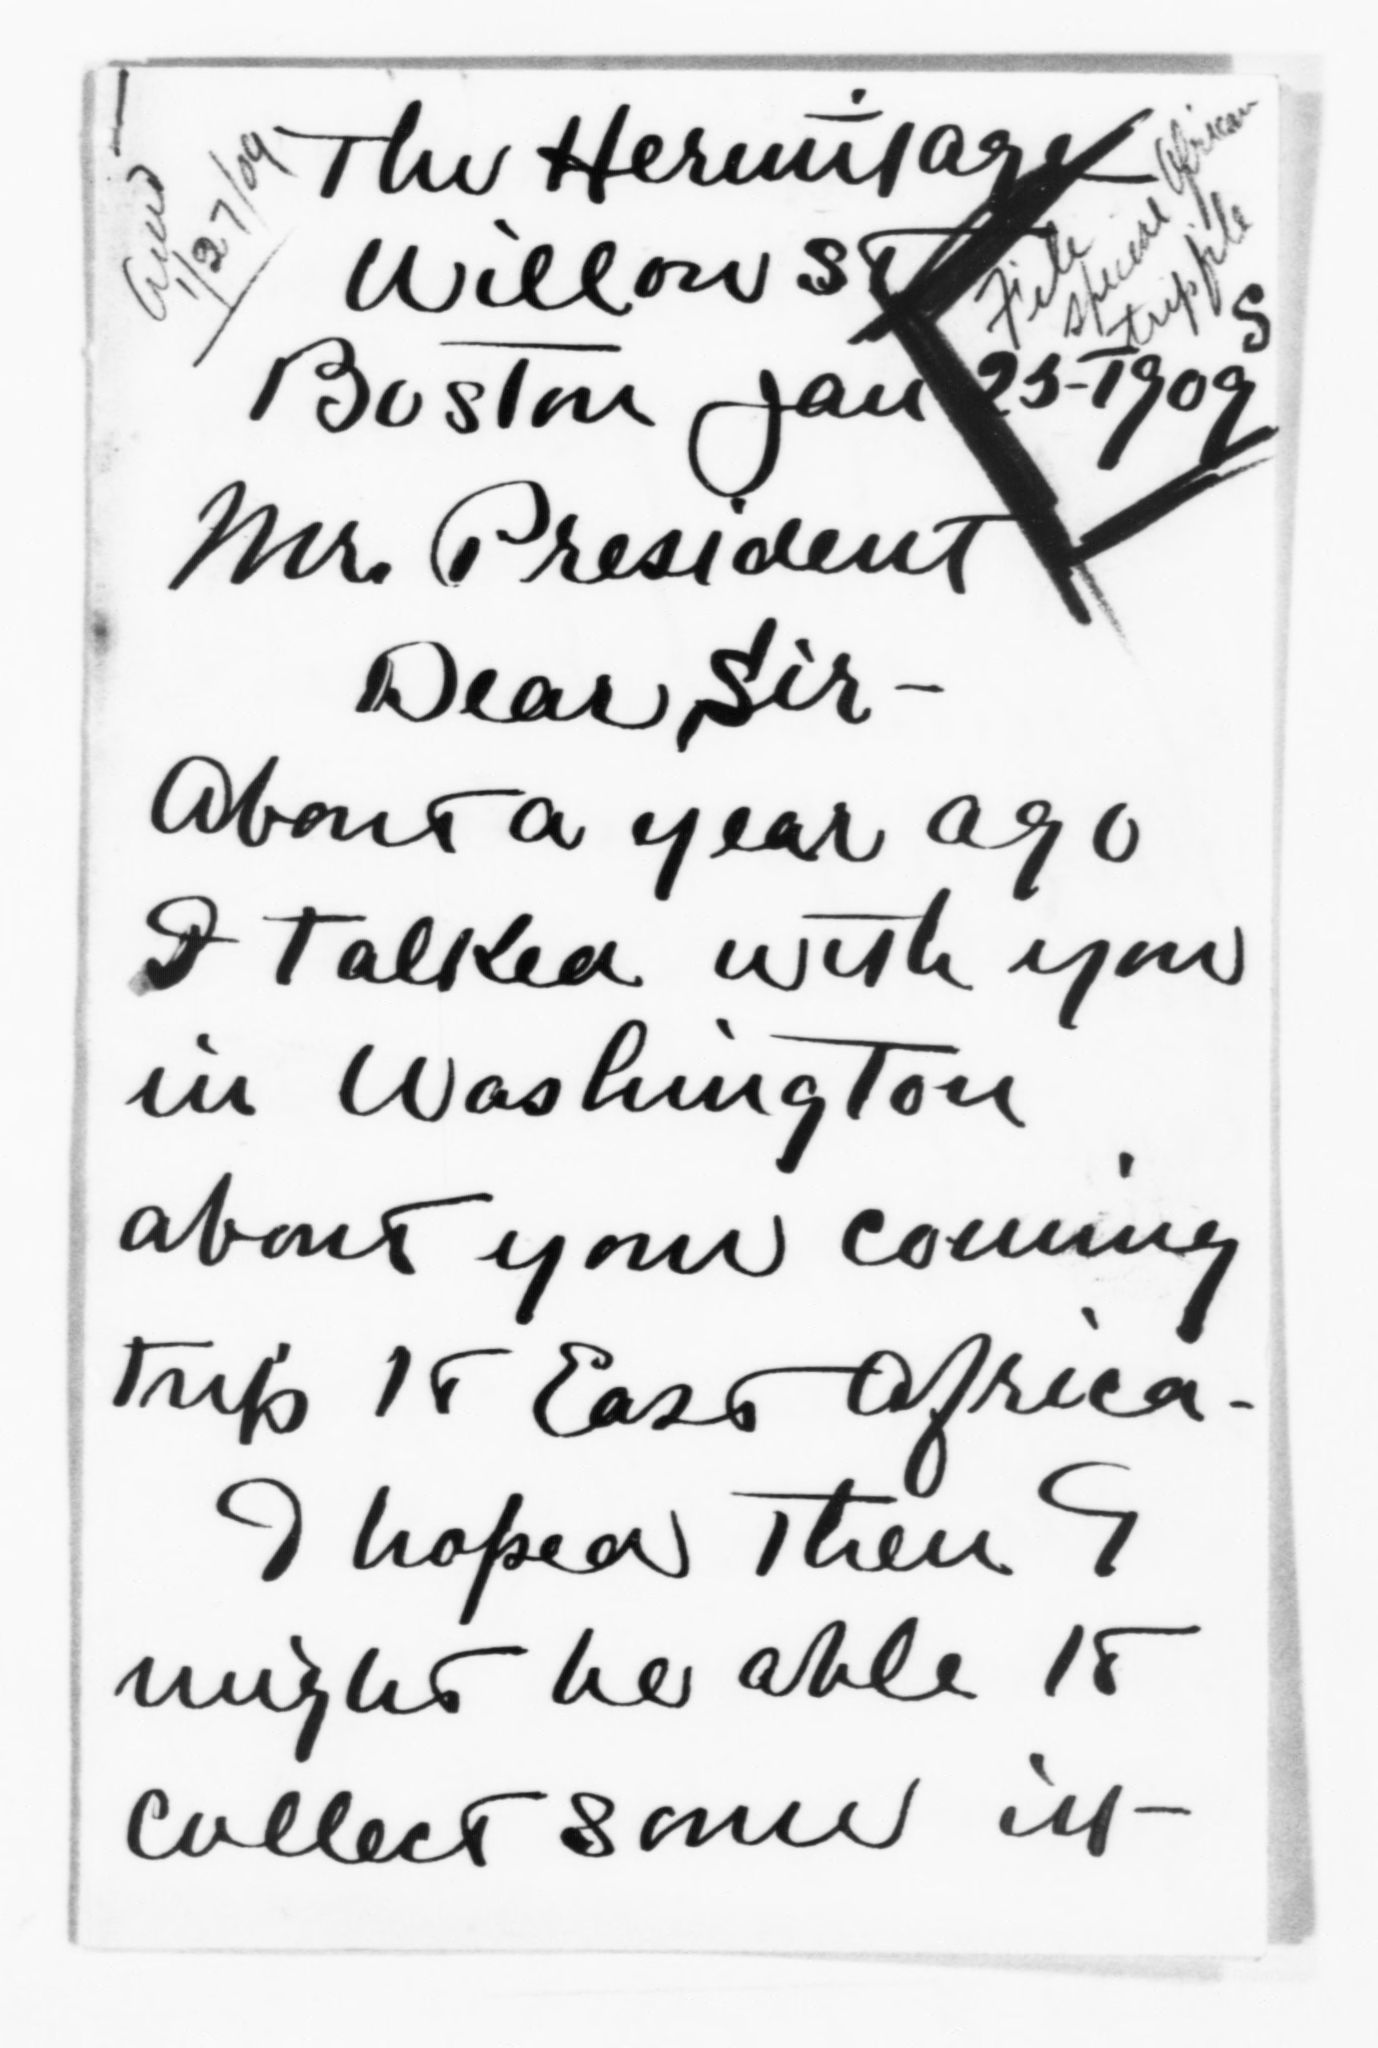 Ansd
1/27/09
The Hermitage
Willow St
File
special African
trip file
S
Boston Jan 25-1909
Mr. President
Dear Sir-
About a year ago
I talked with you
in Washington
about your coming
trip to East Africa-
I hoped then I
might be able to
collect some in-